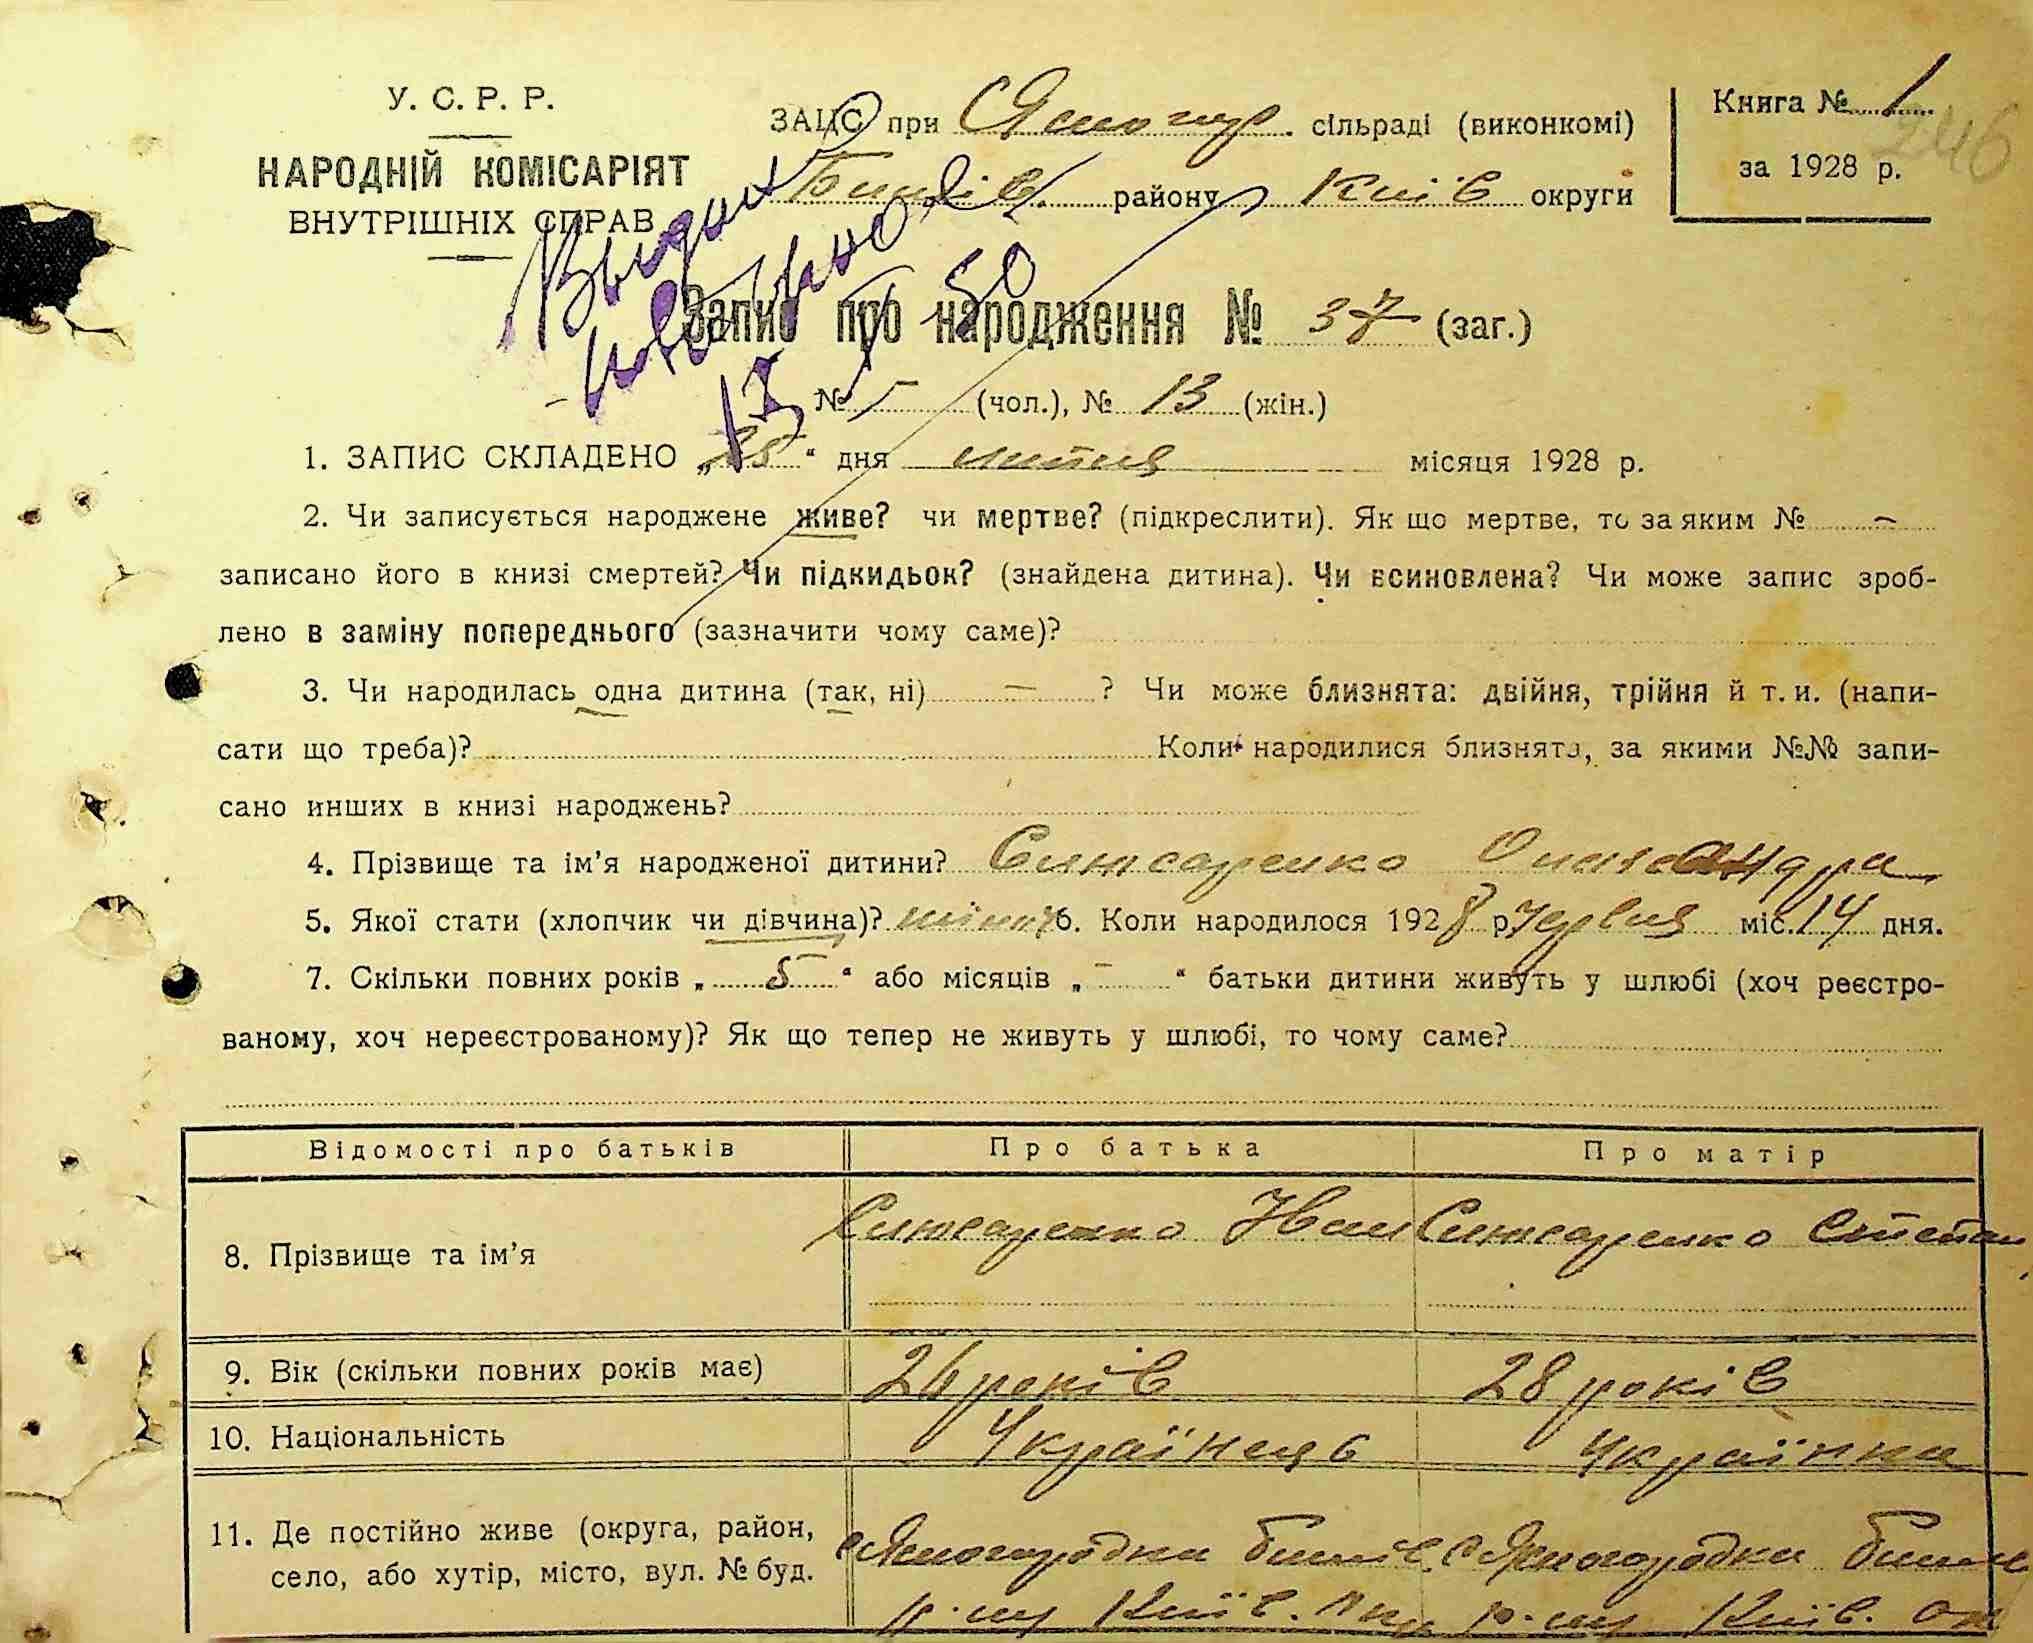 У. С. Р. Р.
НАРОДНІЙ КОМІСАРІЯТ
ВНУТРІШНІХ СПРАВ
ЗАЦС при Ясногор. сільраді (виконкомі)
району Київ округи
Книга № 1
246
за 1928 р.
Выдано
повторно
13 50
Запис про народження № 37 (заг.)
№ (чол.), № 13 (жін.)
1. ЗАПИС СКЛАДЕНО „25“ дня липня місяця 1928 р.
2. Чи записується народжене живе? чи мертве? (підкреслити). Як що мертве, то за яким № –
записано його в книзі смертей? Чи підкидьок? (знайдена дитина). Чи всиновлена? Чи може запис зроб-
лено в заміну попереднього (зазначити чому саме)?
3. Чи народилась одна дитина (так, ні) – ? Чи може близнята: двійня, трійня й т. и. (напи-
сати що треба)? Коли народилися близнята, за якими №№ запи-
сано инших в книзі народжень?
4. Прізвище та ім’я народженої дитини? Слюсаренко Олександра
5. Якої стати (хлопчик чи дівчина)? жіноч 6. Коли народилося 1928 р. червня міс. 14 дня.
7. Скільки повних років „ 5 “ або місяців „ – “ батьки дитини живуть у шлюбі (хоч реєстро-
ваному, хоч нереєстрованому)? Як що тепер не живуть у шлюбі, то чому саме?
Відомості про батьків Про батька Про матір
8. Прізвище та ім’я Слюсаренко Іван Слюсаренко Степан
9. Вік (скільки повних років має) 26 років 28 років
10. Національність Українець Українка
11. Де постійно живе (округа, район,
село, або хутір, місто, вул. № буд.
с Ясногородка с Ясногородка
р-ну Київ. р-ну Київ. ок